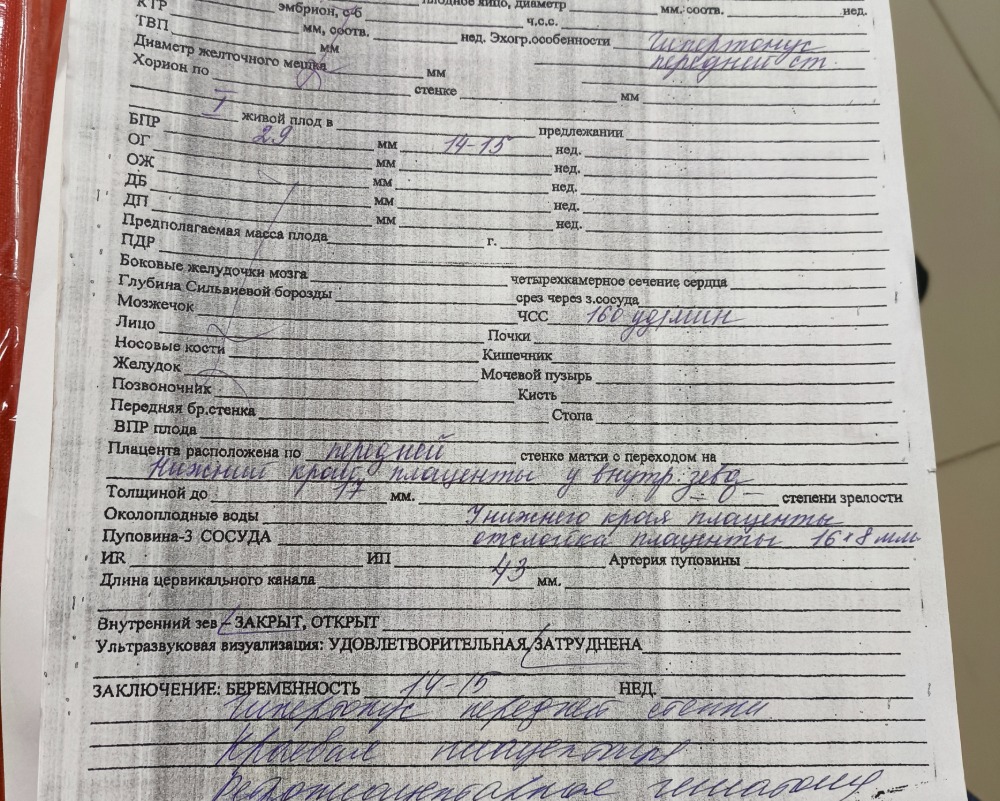 КТР эмбрион, с/б плодное яйцо, диаметр мм. соотв. нед.
ТВП мм, соотв. ч.с.с.
мм нед. Эхогр.особенности Гипертонус
Диаметр желточного мешка мм передней ст
Хорион по стенке мм
I живой плод в предлежании
БПР 29 мм 14-15 нед.
ОГ мм нед.
ОЖ мм нед.
ДБ мм нед.
ДП мм нед.
Предполагаемая масса плода г.
ПДР
Боковые желудочки мозга четырехкамерное сечение сердца
Глубина Сильвиевой борозды срез через 3.сосуда
Мозжечок ЧСС 160 уд/мин
Лицо Почки
Носовые кости Кишечник
Желудок Мочевой пузырь
Позвоночник Кисть
Передняя бр.стенка Стопа
ВПР плода
Плацента расположена по передней стенке матки с переходом на
Нижний край плаценты у внутр. зева
Толщиной до 17 мм. степени зрелости
Околоплодные воды У нижнего края плаценты
Пуповина-3 СОСУДА отслойка плаценты 16×8 мм
ИR ИП Артерия пуповины
Длина цервикального канала 43 мм.
Внутренний зев - ЗАКРЫТ, ОТКРЫТ
Ультразвуковая визуализация: УДОВЛЕТВОРИТЕЛЬНАЯ, ЗАТРУДНЕНА
ЗАКЛЮЧЕНИЕ: БЕРЕМЕННОСТЬ 14-15 НЕД.
Гипертонус передней стенки
Краевая
Ретроплацентарная гематома